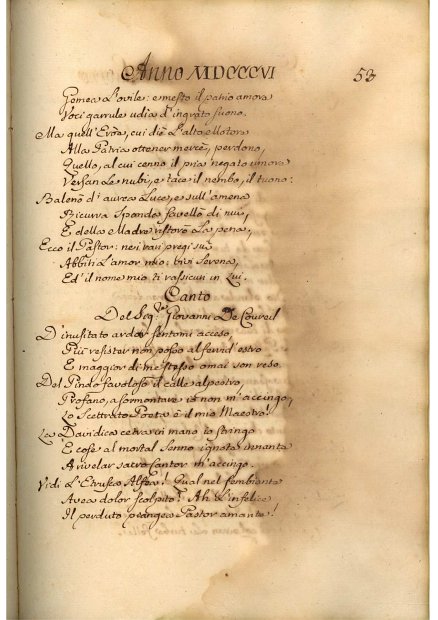 Anno MDCCCVI 53
Gemea l'ovile: e mesto il patrio amora
Voci garrule udia d'ingrato suono.
Ma quell'Eroe, cui diè l'alto Motore
Alla Patria ottener mercè, perdono,
Quello, al cui cenno il pria negato umore
Versan le nubi, e tace il nembo, il tuono:
Balenò d'aurea Luce, e sull'amena
Ricurva Sponda favellò di nui,
E della Madre ristorò la pena,
Ecco il Pastor: nei rari pregi sui
Abbiti l'amor mio: vivi Serena,
Ed il nome mio ti rassicuri in Lui.
Canto
Del Sig.r Giovanni De Coureil
D'inusitato ardor sentomi acceso,
Più resister non posso al fervid'estro
E maggior di me stesso omai son reso.
Del Pindo favoloso il calle alpestro,
Profano, a sormontare io non m'accingo,
Lo Scettrato Poeta è il mio Maestro.
La Davidica cetra in mano io stringo
E cose al mortal Senno ignote innante
A rivelar sacro Cantor m'accingo.
Vidi l'Etrusca Alfea! Qual nel sembiante
Avea dolor scolpito! Ah l'infelice
Il perduto piangea Pastor amante!